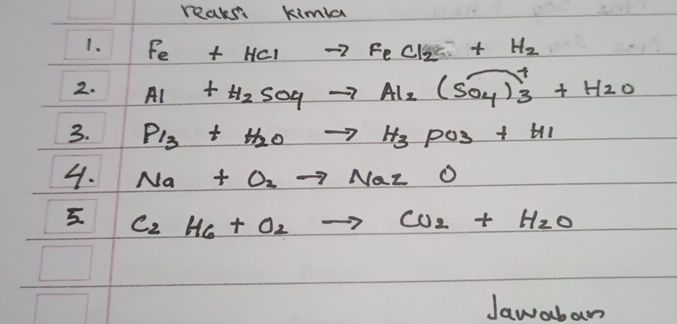 reaksi kimia
1. Fe + HCl → FeCl2 + H2
2. Al + H2SO4 → Al2 (SO4)3 + H2O
3. PI3 + H2O → H3PO3 + HI
4. Na + O2 → Na2O
5. C2H6 + O2 → CO2 + H2O
Jawaban